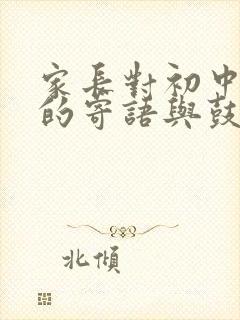 家長對初中
的寄語與鼓
北傾